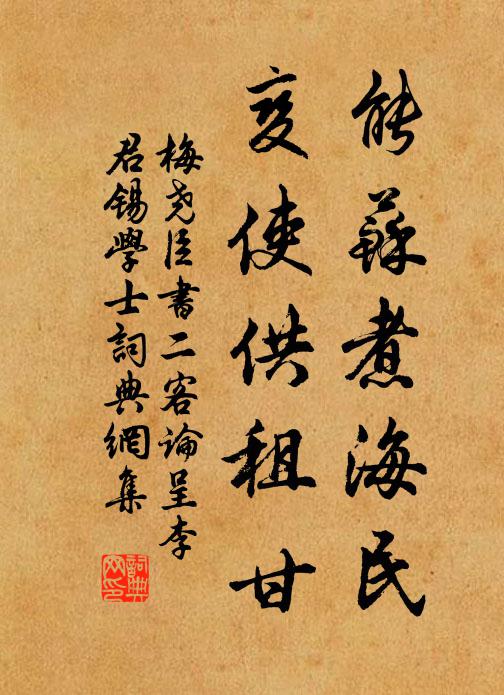 能蘇煮海民
変使供租甘
梅尧臣書二客論呈李
君錫學士詞典網集
詞典
网印